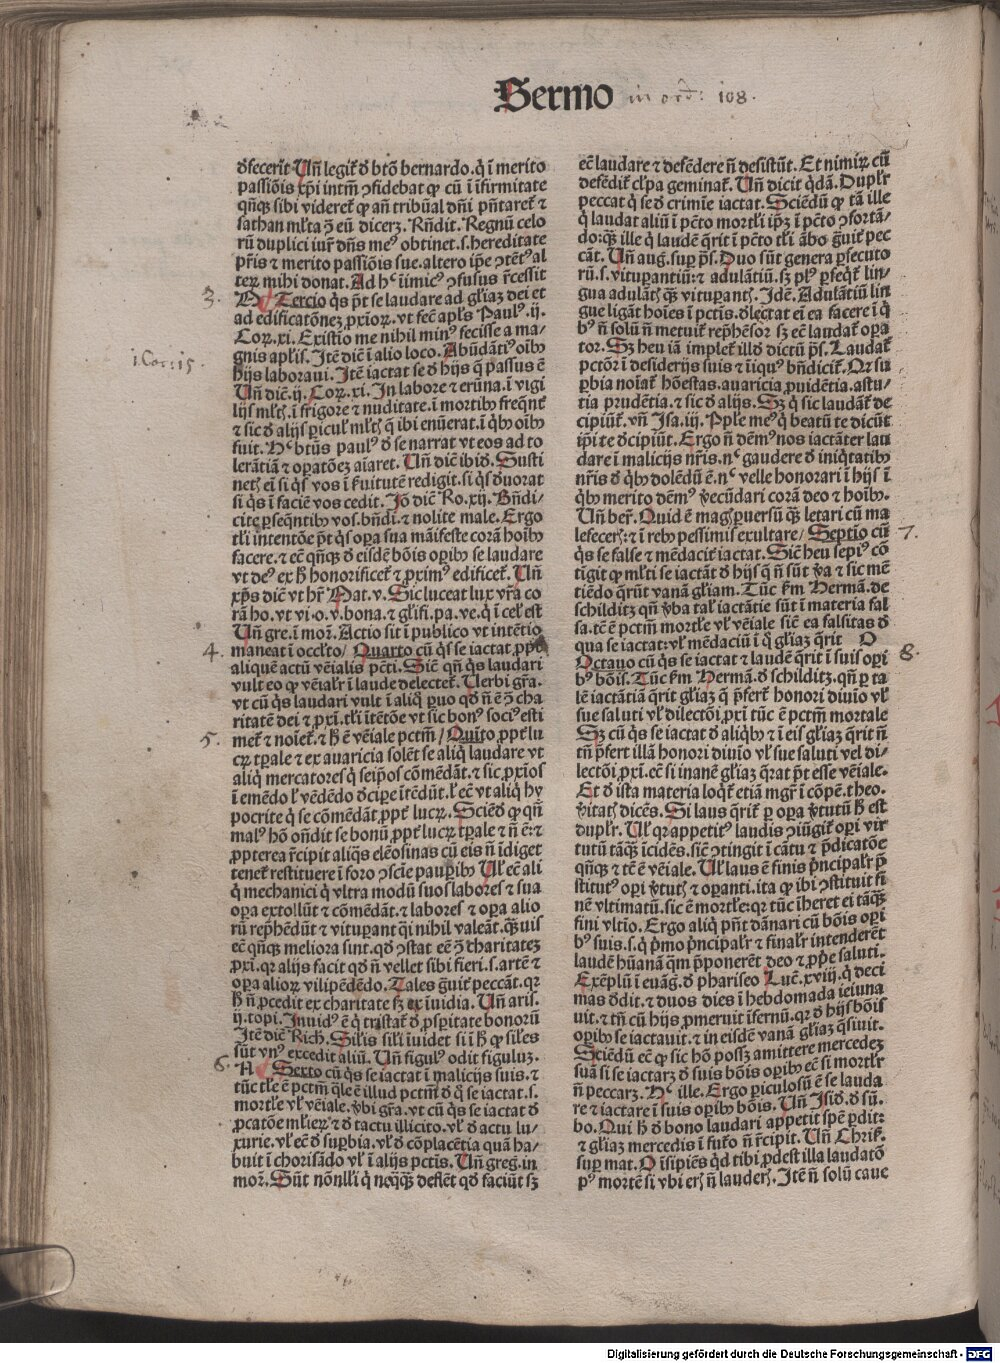 Sermo in ord: 108.
ꝺfecerit Un̄ legit᷑ ꝺ btō bernardo. q̇ ī merito
passiōis xp̄i intm̄ ↄfidebat ꝙ cū ī īfirmitate
qn̄qꝫ sibi videret᷑ ꝙ an̄ tribūal dn̄i pn̄taret᷑ ⁊
sathan ml̄ta ꝫ eū dicerꝫ. Rn̄dit. Regnū celo
rū duplici iur̄ dn̄s meꝰ obtinet. s. hereditate
pr̄is ⁊ merito passiōis sue. altero ip̄e ↄtētꝰ al
terꝫ mihi donat. Ad hᵒ īimicꝰ ↄfusus r̄cessit
3. Tercio q̇s pt̄ se laudare ad gl̄iaꝫ dei et
ad edificatōneꝫ ꝓxioꝝ. vt fec̄ apl̄s Paulꝰ. ij.
Coꝝ. xi. Existīo me nihil minꝰ fecisse a ma/
i. Cor: 15.
gnis apl̄is. Itē diē ī alio loco. Abūdātiꝰ oīb⁹
hijs laboraui. Itē iactat se ꝺ hijs q̄ passus ē
Un̄ diē. ij. Coꝝ. xi. In labore ⁊ erūna. ī vigi
lijs ml̄tꝭ. ī frigore ⁊ nuditate. ī mortib⁹ freqn̄t᷑
⁊ sic ꝺ alijs ꝑicul᷑ ml̄tꝭ q̄ ibi enūerat. ī q̇b⁹ oīb⁹
fuit. Hᵒ btūs paulꝰ ꝺ se narrat vt eos ad to
lerātiā ⁊ oꝑatōeꝫ aīaret. Un̄ diē ibiꝺ. Susti
netꝭ eī si q̇s vos ī ẜuitutē redigit. si q̇s ꝺuorat
si q̇s ī faciē vos cedit. Jō diē Ro. xij. Bn̄di/
cite ꝑseqn̄tib⁹ vos. bn̄di. ⁊ nolite male. Ergo
tl̄i intentōe pt̄ q̇s oꝑa sua māifeste corā hoīb⁹
facere. ⁊ ec̄ qn̄qꝫ ꝺ eisdē bōis oꝑib⁹ se laudare
vt deꝰ ex ħ honorificet᷑ ⁊ ꝓximꝰ edificet᷑. Un̄
xp̄s diē vt hr̄ Mat. v. Sic luceat lux vr̄a co
rā ho. vt vi. o. v. bona. ⁊ gl̄ifi. pa. ve. q̇ ī cel᷑ est
Un̄ gre. ī moꝛ. Actio sit ī publico vt intētio
4. maneat ī occl̄to/ Quarto cū q̇s se iactat ꝓpt̄
aliquē actū vēialis pc̄ti. Sic̄ qn̄ q̇s laudari
vult eo ꝙ vēial᷑r ī laude delectet᷑. Uerbi gr̄a.
vt cū q̇s laudari vult ī aliq̇ ꝑuo qd̄ n̄ ē ꝫ cha
ritatē dei ⁊ ꝓxi. tl̄i ītētōe vt sic bonꝰ sociꝰ esti
5. met᷑ ⁊ noīet᷑. ⁊ ħ ē vēiale pctm̄/ Quīto ꝓpt̄ lu
cꝝ tꝑale ⁊ ex auaricia solēt se aliq̇ laudare vt
aliq̇ mercatores q̇ seip̄os cōmēdāt. ⁊ sic ꝓxīos
ī emēdo l᷑ vēdēdo ꝺciꝑe ītēdūt. l᷑ ec̄ vt aliq̇ hy
pocrite q̇ se cōmēdāt ꝓpt̄ lucꝝ. Sciēꝺ ꝙ qn̄
malꝰ hō on̄dit se bonū ꝓpt̄ lucꝝ tꝑale ⁊ n̄ ē: ⁊
ꝓpterea r̄cipit aliq̇s elēosinas cū eis n̄ īdiget
tenet᷑ restituere ī foro ↄscīe pauꝑib⁹ Ul᷑ ec̄ ali
q̇ mechanici q̇ vltra modū suos labores ⁊ sua
oꝑa extollūt ⁊ cōmēdāt. ⁊ labores ⁊ oꝑa alio
rū rep̄hēdūt ⁊ vituꝑant qi nihil valeāt. qꝫuis
ec̄ qn̄qꝫ meliora sint. qd̄ ↄstat ec̄ ꝫ charitateꝫ
ꝓxi. qꝛ alijs facit qd̄ n̄ vellet sibi fieri. s. artē ⁊
oꝑa alioꝝ vilipēdēdo. Tales g̈uit᷑ peccāt. qꝛ
ħ n̄ ꝓcedit ex charitate sꝫ ex īuidia. Un̄ aris.
ij. topi. Inuidꝰ ē q̇ tristat᷑ ꝺ ꝓsꝑitate bonorū
Itē diē Rich. Sil̄is sil̄i īuidet si ī ħ ꝙ sil̄es
sūt vnꝰ excedit aliū. Un̄ figulꝰ odit figuluꝫ.
6. Sexto cū q̇s se iactat ī malicijs suis. ⁊
tūc tl̄e ē pctm̄ ql̄e ē illud pctm̄ ꝺ q̇ se iactat. s.
mortl̄e vl᷑ vēiale. v̄bi gr̄a. vt cū q̇s se iactat ꝺ
ꝓcatōe ml̄ieꝝ ⁊ ꝺ tactu illicito. vl᷑ ꝺ actu lu/
xurie. vl᷑ ec̄ ꝺ suꝑbia. vl᷑ ꝺ cōplacētia quā ha/
buit ī chorisādo vl᷑ ī alijs pctīs. Un̄ greg. in
moꝛ. Sūt nōnl̄li q̇ neqꝫqꝫ deflēt qd̄ faciūt sꝫ
ec̄ laudare ⁊ defēdere n̄ desistūt. Et nimiꝝ cū
defēdit᷑ cl̄pa geminat᷑. Un̄ dicit qdā. Dupl᷑r
peccat q̇ se ꝺ crimīe iactat. Sciēdū ꝙ tā ille
q̇ laudat aliū ī pc̄to mortl̄i ip̄ꝫ ī pc̄to ↄfortā/
do: qꝫ ille q̇ laudē q̄rit ī pc̄to tl̄i ābo g̈uit᷑ pec
cāt. Un̄ aug. suꝑ ps̄. Duo sūt genera ꝑsecuto
rū. s. vituꝑantiū: ⁊ adulātiū. sꝫ plꝰ ꝑseqt᷑ lin/
gua adulātꝭ qꝫ vituꝑantꝭ. Idē. Adulātiū lin
gue ligāt hoīes ī pctīs. ꝺlectat eī ea facere ī q̇
bꝰ n̄ solū n̄ metuit᷑ rep̄hēsor sꝫ ec̄ laudat᷑ oꝑa
tor. Sꝫ heu iā implet᷑ illꝺ dictū ps̄. Laudat᷑
pctōr ī desiderijs suis ⁊ īiquꝰ bn̄dicit᷑. Qꝛ su
ꝑbia noīat᷑ hōestas. auaricia ꝓuidētia. astu/
tia prudētia. ⁊ sic ꝺ alijs. Sꝫ q̇ sic laudāt᷑ de
cipiūt᷑. vn̄ Isa. iij. Pple meꝰ q̇ beatū te dicūt
ip̄i te ꝺcipiūt. Ergo n̄ dēmꝰ nos iactāter lau
dare ī malicijs nr̄is. nᵒ gaudere ꝺ iniq̇tatib⁹
nr̄is ꝺ q̇b⁹ dolēdū ē. nᵒ velle honorari ī hijs ī
q̇b⁹ merito dēmꝰ v̄ecūdari corā deo ⁊ hoīb⁹.
Un̄ ber᷑. Quid ē magꝭ ꝑuersū qꝫ letari cū ma
lefecerꝭ: ⁊ ī reb⁹ pessimis exultare/ Septīo cū 7.
q̇s se false ⁊ mēdacit᷑ iactat. Sic̄ heu sepiꝰ cō
tīgit ꝙ ml̄ti se iactāt ꝺ hijs q̄ n̄ sūt v̄a ⁊ sic mē
tiēdo q̄rūt vanā gl̄iam. Tūc ẜm Hermā. de
schilditz qn̄ v̄ba tal᷑ iactātie sūt ī materia fal
sa. tē ē pctm̄ mortl̄e vl᷑ vēiale sic̄ ea falsitas ꝺ
qua se iactat: vl᷑ mēdaciū ī q̇ gl̄iaꝫ q̄rit O
Octauo cū q̇s se iactat ⁊ laudē q̄rit ī suis oꝑi 8.
bꝰ bōis. Tūc ẜm Hermā. ꝺ schilditz. qn̄ ꝑ ta
lē iactātiā q̄rit gl̄iaꝫ q̄ p̄fert᷑ honori diuīo vl᷑
sue saluti vl᷑ dilectōi ꝓxi tūc ē pctm̄ mortale
Sꝫ cū q̇s se iactat ꝺ aliq̇b⁹ ⁊ ī eis gl̄iaꝫ q̄rit n̄
tn̄ p̄fert illā honori diuīo vl᷑ sue saluti vel di/
lectōi ꝓxi. ec̄ si inanē gl̄iaꝫ q̄rat pt̄ esse vēiale.
Et ꝺ ista materia loqt᷑ etiā mgr̄ ī cōpē. theo.
v̄itatꝭ dicēs. Si laus q̄rit᷑ ꝑ oꝑa v̄tutū ħ est
dupl᷑r. Ul᷑ qꝛ appetitꝰ laudis ↄiūgit᷑ oꝑi vir
tutū tāqꝫ īcidēs. sic̄ ↄtingit ī cātu ⁊ p̄dicatōe
qn̄qꝫ ⁊ tē ē vēiale. Ul᷑ laus ē finis p̄ncipal᷑r p̄
stitutꝰ oꝑi v̄tutꝭ ⁊ oꝑanti. ita ꝙ ibi ↄstituit fi
nē vltimatū. sic ē mortl̄e: qꝛ tūc īheret ei tāqꝫ
fini vltīo. Ergo aliq̇ pn̄t dānari cū bōis oꝑi
bꝰ suis. s. q̇ p̄mo p̄ncipal᷑r ⁊ final᷑r intenderēt
laudē hūanā qm̄ p̄ponerēt deo ⁊ ꝓp̄e saluti.
Exēplū ī euāg. ꝺ phariseo Luc̄. xviij. q̇ deci
mas ꝺdit. ⁊ duos dies ī hebdomada ieiuna
uit. ⁊ tn̄ cū hijs ꝓmeruit īfernū. qꝛ ꝺ hijs bōis
oꝑib⁹ se iactauit. ⁊ in eisdē vanā gl̄iaꝫ q̄siuit.
Sciēdū ec̄ ꝙ sic hō possꝫ amittere mercedeꝫ
suā si se iactarꝫ ꝺ suis bōis oꝑib⁹ ec̄ si mortl᷑r
n̄ peccarꝫ. Hᵒ ille. Ergo ꝑiculosū ē se lauda
re ⁊ iactare ī suis oꝑib⁹ bōis. Un̄ Isiꝺ. ꝺ sū.
bo. Qui ħ ꝺ bono laudari appetit spē ꝑdit:
⁊ gl̄iaꝫ mercedis ī fut᷑o n̄ r̄cipit. Un̄ Chris᷑.
suꝑ mat. O īsipiēs qd̄ tibi ꝓdest illa laudatō
pꝰ mortē si vbi erꝭ n̄ lauderꝭ. Itē n̄ solū caue
Digitalisierung gefördert durch die Deutsche Forschungsgemeinschaft - DFG